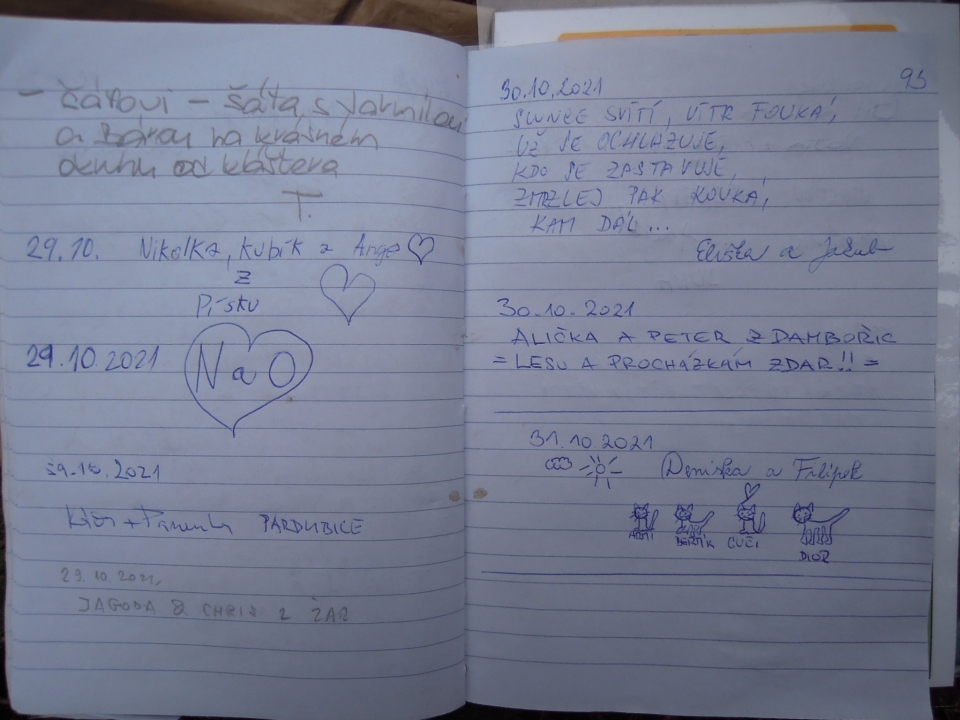 - čápovi - šáta, s Jarmilou
a Bárou na krásném
okruhu od kláštera
T.
29.10. Nikolka, Kubík a Ange
z
Písku
29.10.2021
NaO
29.10.2021
PARDUBICE
29.10.2021,
JAGODA & CHRIS Z ŻAR
95
30.10.2021
SLUNCE SVÍTÍ, VÍTR FOUKÁ,
UŽ SE OCHLAZUJE,
KDO SE ZASTAVUJE,
ZMRZLEJ PAK KOUKÁ,
KAM DÁL...
Eliška a Jakub
30.10.2021
ALIČKA A PETER Z DAMBOŘIC
= LESU A PROCHÁZKÁM ZDAR!! =
31.10.2021
Deniska a Filípek
BERTÍK CUČI DIOR